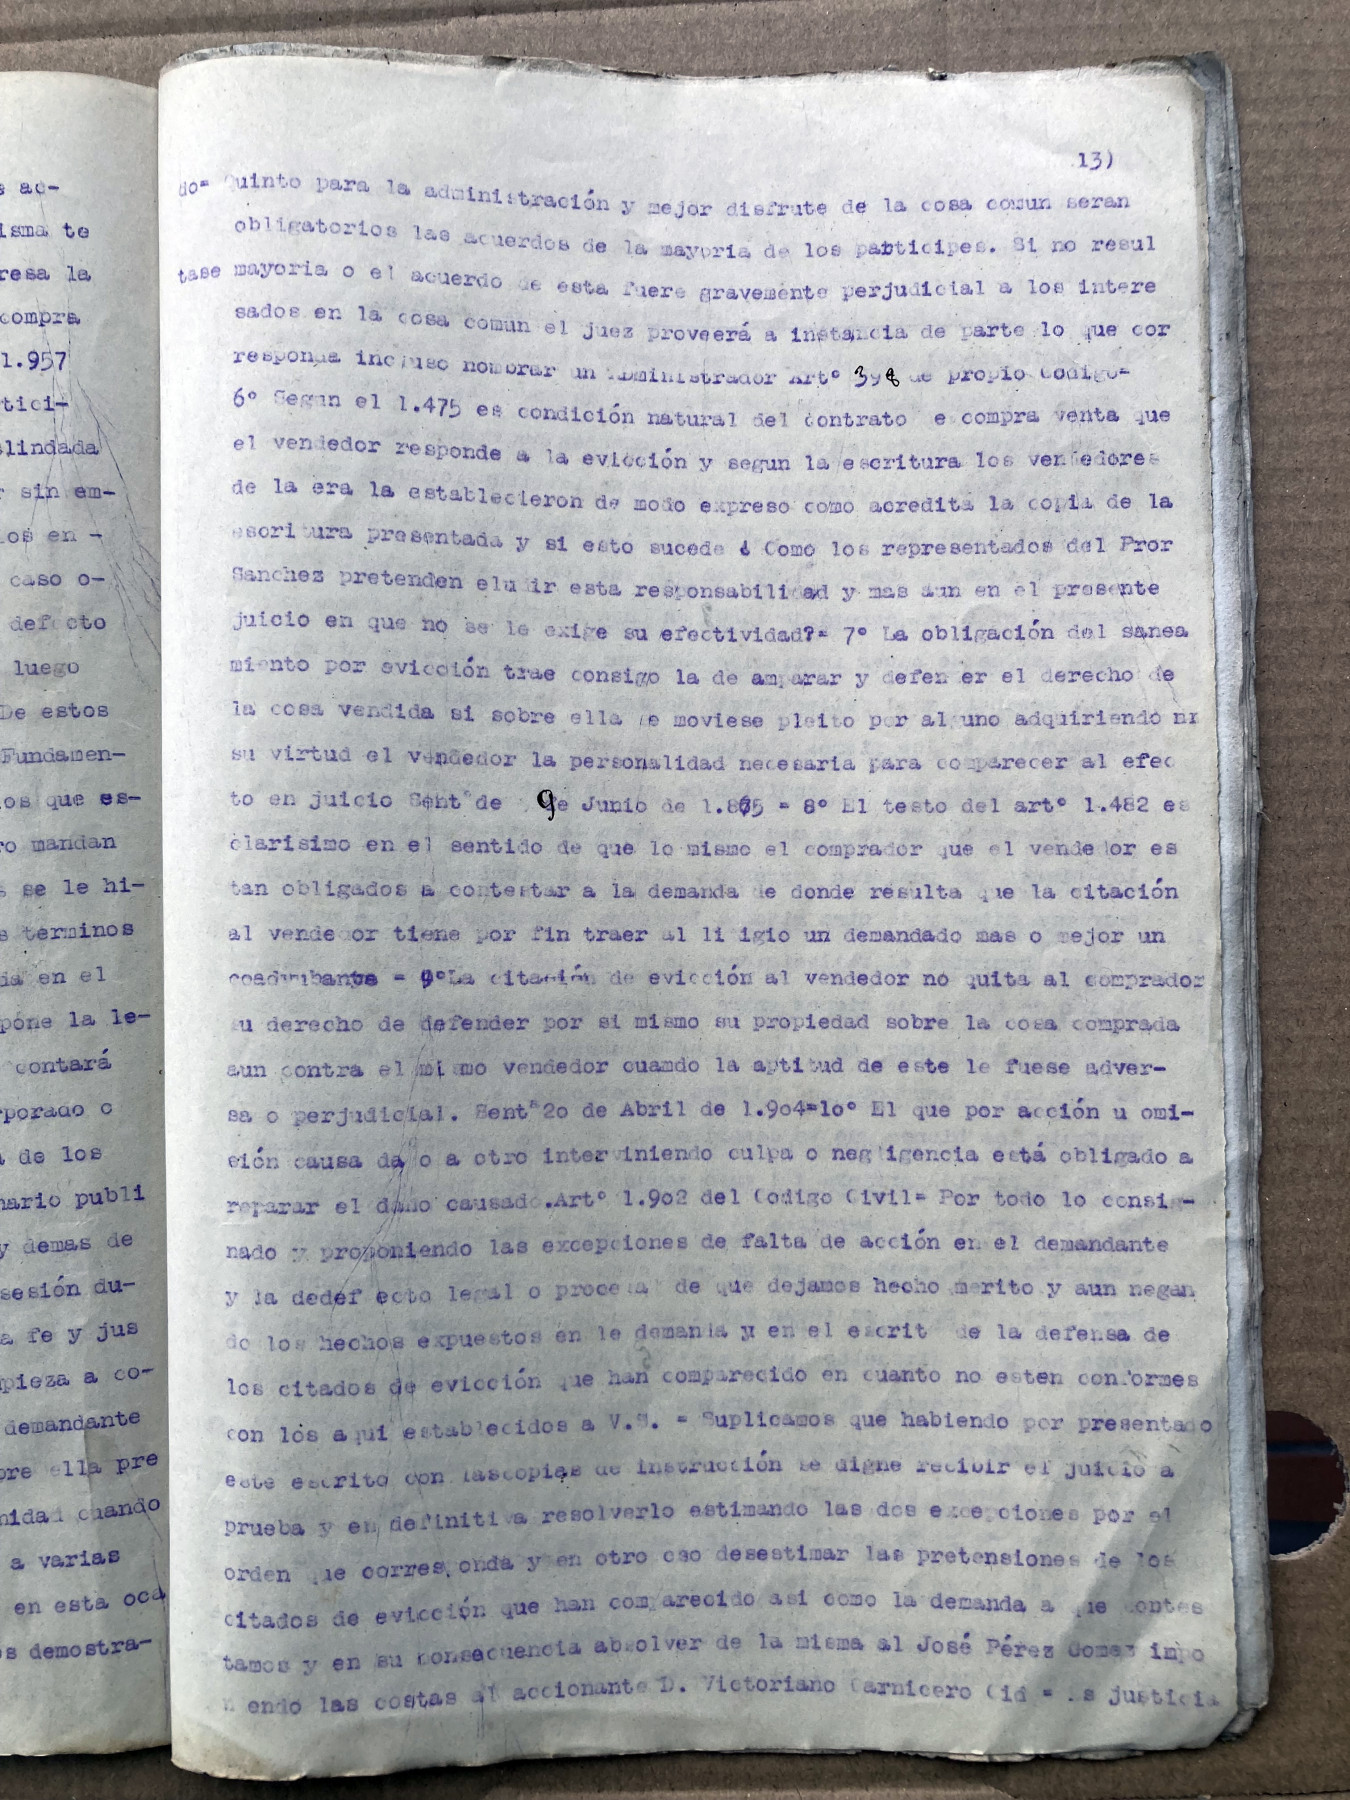 e ac-
isma te
resa la
compra
1.957
rtici-
slindada
r sin em-
los en -
caso o-
defecto
luego
De estos
Fundamen-
os que es-
ro mandan
s se le hi-
s terminos
da en el
pone la le-
contará
rporado o
a de los
nario publi
y demas de
sesión du-
a fe y jus
pieza a co-
demandante
bre ella pre
nidad cuando
a varias
en esta oca
os demostra-
13)
do= Quinto para la administración y mejor disfrute de la cosa comun seran
obligatorios las acuerdos de la mayoria de los participes. Si no resul
tase mayoria o el acuerdo de esta fuere gravemente perjudicial a los intere
sados en la cosa comun el juez proveerá a instancia de parte lo que cor
responda incluso nombrar un administrador Artº 398 de propio Codigo=
6º Segun el 1.475 es condición natural del contrato e compra venta que
el vendedor responde a la evicción y segun la escritura los vendedores
de la era la establecieron de modo expreso como acredita la copia de la
escritura presentada y si esto sucede ¿ Como los representados del Pror
Sanchez pretenden eludir esta responsabilidad y mas aun en el presente
juicio en que no se le exige su efectividad?= 7º La obligación del sanea
miento por evicción trae consigo la de amparar y defender el derecho de
la cosa vendida si sobre ella se moviese pleito por alguno adquiriendo nr
su virtud el vendedor la personalidad necesaria para comparecer al efec
to en juicio Sentª de 9 de Junio de 1.865 = 8º El testo del artº 1.482 es
clarisimo en el sentido de que lo mismo el comprador que el vendedor es
tan obligados a contestar a la demanda de donde resulta que la citación
al vendedor tiene por fin traer al litigio un demandado mas o mejor un
coadyubante = 9ºLa citación de evicción al vendedor no quita al comprador
su derecho de defender por si mismo su propiedad sobre la cosa comprada
aun contra el mismo vendedor cuando la aptitud de este le fuese adver-
sa o perjudicial. Sentª 20 de Abril de 1.904=10º El que por acción u omi-
sión causa daño a otro interviniendo culpa o negligencia está obligado a
reparar el daño causado.Artº 1.902 del Codigo Civil= Por todo lo consig-
nado y proponiendo las excepciones de falta de acción en el demandante
y la dedef ecto legal o procesal de que dejamos hecho merito y aun negan
do los hechos expuestos en le demanda y en el escrito de la defensa de
los citados de evicción que han comparecido en cuanto no esten conformes
con los aqui establecidos a V.S. = Suplicamos que habiendo por presentado
este escrito con lascopias de instrucción se digne recibir el juicio a
prueba y en definitiva resolverlo estimando las dos excepciones por el
orden que corresponda y en otro cso desestimar las pretensiones de los
citados de evicción que han comparecido asi como la demanda a que contes
tamos y en su consecuencia absolver de la misma al José Pérez Gomez impo
n endo las costas al accionante D. Victoriano Carnicero Cid = Es justicia